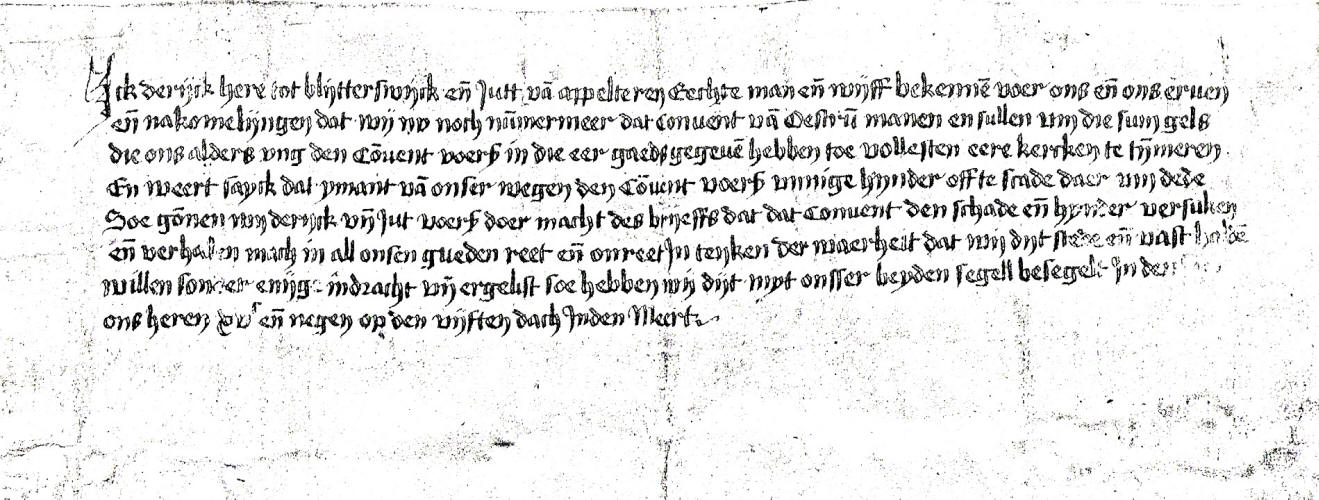 Ick derijck here tot blijtterswijck en̄ Jutt vā appelteren Eechte man en̄ wijff bekennē voer ons en̄ ons eruen
en̄ nakomelijngen dat wij nv noch nūmermeer dat Convent vā Oestrū manen en sullen vm die sum gels
die ons alders vng den Cōvent voers in die eer gaeds gegeuē hebben toe vollesten eere kercken te tȳmeren
En weert sayck dat ymant vā onser wegen den Cōvent voers ennige hynder offte scade daer vm dede
Soe gōnen wy derijck vn̄ Jut voers doer macht des brijeffs dat dat Convent den schade en̄ hynder versuken
en̄ verhalen mach in all onsen gueden reet en̄ onreet Jn teyken der waerheit dat wij dijt stede en̄ vast haldē
willen sonder enijge indracht vn̄ ergelist soe hebben wij dijt myt onsser beyden segell besegelt Jn den
ons heren xvc en̄ negen op den vijften dach Jnden Meert